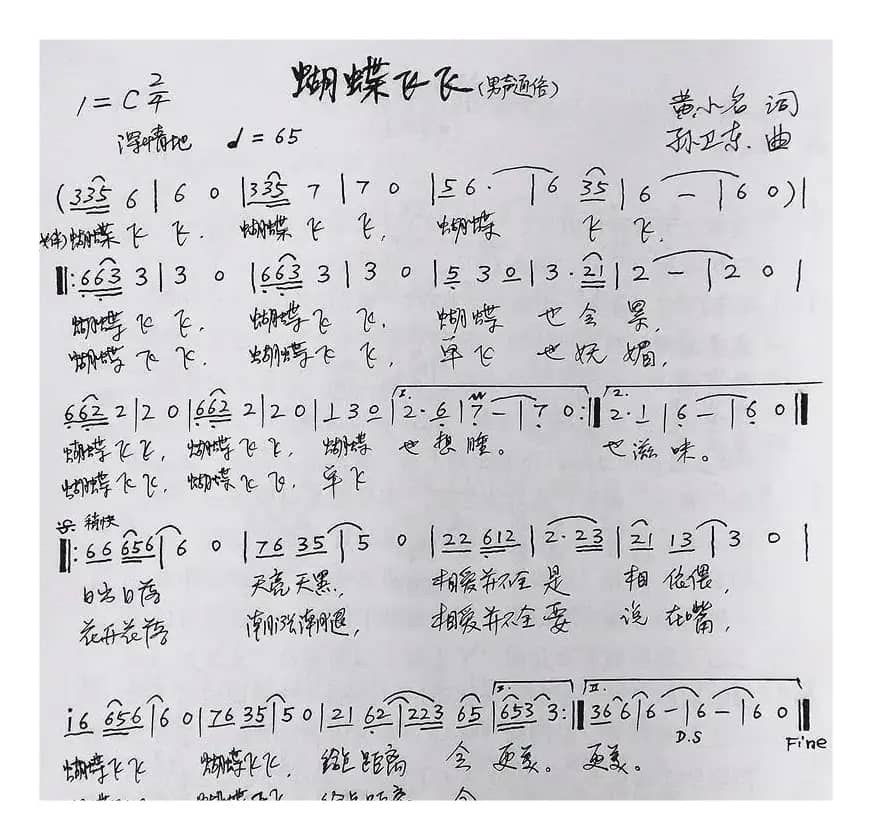 蝴蝶飞飞(男声通俗)
1=C 2/4
黄小名 词
深情地 ♩=65
孙卫东 曲
(335 6 | 6 0 | 335 7 | 7 0 | 56· | 6 35 | 6 — | 6 0 ) |
(伴)蝴蝶飞飞. 蝴蝶飞飞, 蝴蝶飞飞.
‖: 663 3 | 3 0 | 663 3 | 3 0 | 5 3 0 | 3· 21 | 2 — | 2 0 |
蝴蝶飞飞, 蝴蝶飞飞, 蝴蝶也会累,
蝴蝶飞飞, 蝴蝶飞飞, 单飞也妩媚,
662 2 | 2 0 | 662 2 | 2 0 | 1 3 0 | 1. 2· 6 | 7 — | 7 0 :‖ 2. 2· 1 | 6 — | 6 0 ‖
蝴蝶飞飞, 蝴蝶飞飞, 蝴蝶也想睡。 也滋味。
蝴蝶飞飞, 蝴蝶飞飞, 单飞
稍快
‖: 66 656 | 6 0 | 76 35 | 5 0 | 22 612 | 2· 23 | 21 13 | 3 0 |
日出日落 天亮天黑, 相爱并不全是相依偎,
花开花落 潮涨潮退, 相爱并不全要说在嘴,
i6 656 | 6 0 | 76 35 | 5 0 | 21 62 | 223 65 | I. 653 3 :‖ II. 36 6 | 6 — | 6 — | 6 0 ‖
D.S Fine
蝴蝶飞飞 蝴蝶飞飞, 给点距离会更美。 更美。